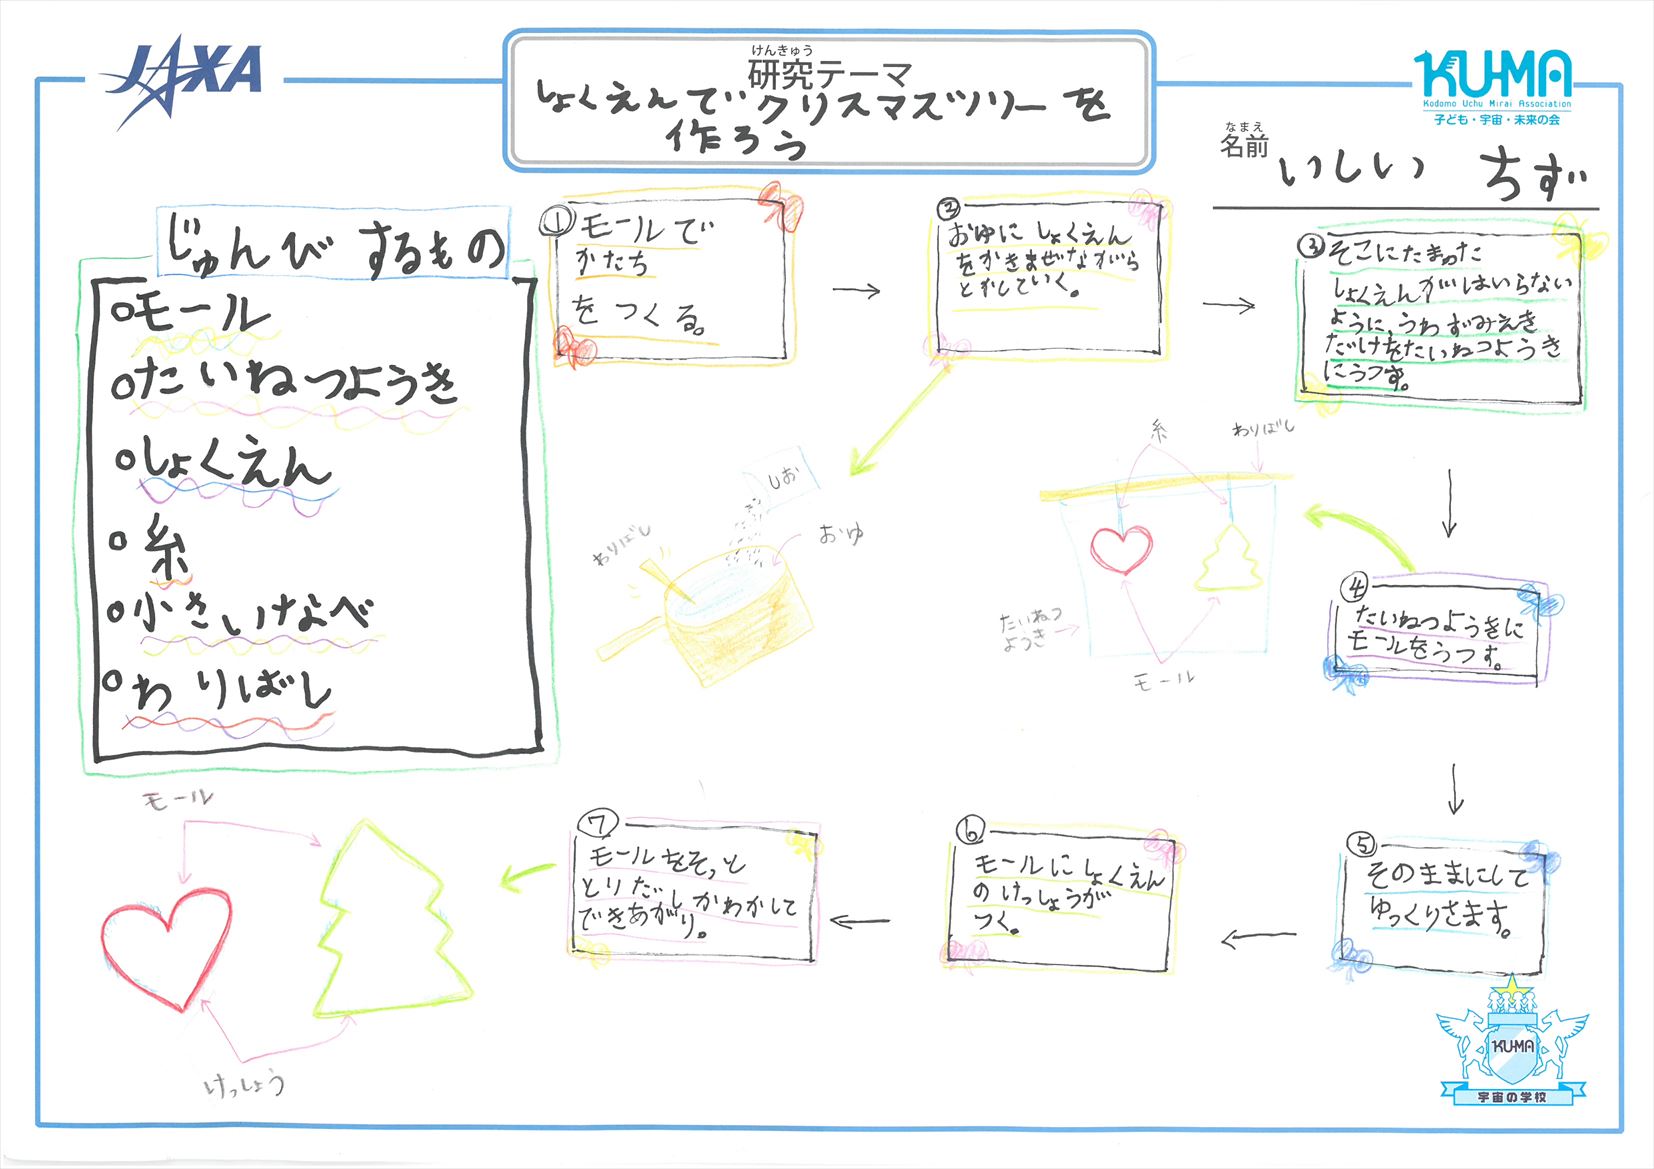 JAXA
けんきゅう
研究テーマ
しょくえんでクリスマスツリーを
作ろう
KU-MA
Kodomo Uchu Mirai Association
子ども・宇宙・未来の会
なまえ
名前
いしい ちず
じゅんびするもの
○モール
○たいねつようき
○しょくえん
○糸
○小さいなべ
○わりばし
①モールで
かたち
をつくる。
②
おゆにしょくえん
をかきまぜながら
とかしていく。
③そこにたまった
しょくえんがはいらない
ように、うわずみえき
だけをたいねつようき
にうつす。
しお
わりばし
おゆ
糸
わりばし
たいねつ
ようき
モール
④
たいねつようきに
モールをうつす。
⑤
そのままにして
ゆっくりさます。
⑥
モールにしょくえん
のけっしょうが
つく。
⑦
モールをそっと
とりだしかわかして
できあがり。
モール
けっしょう
KU-MA
宇宙の学校